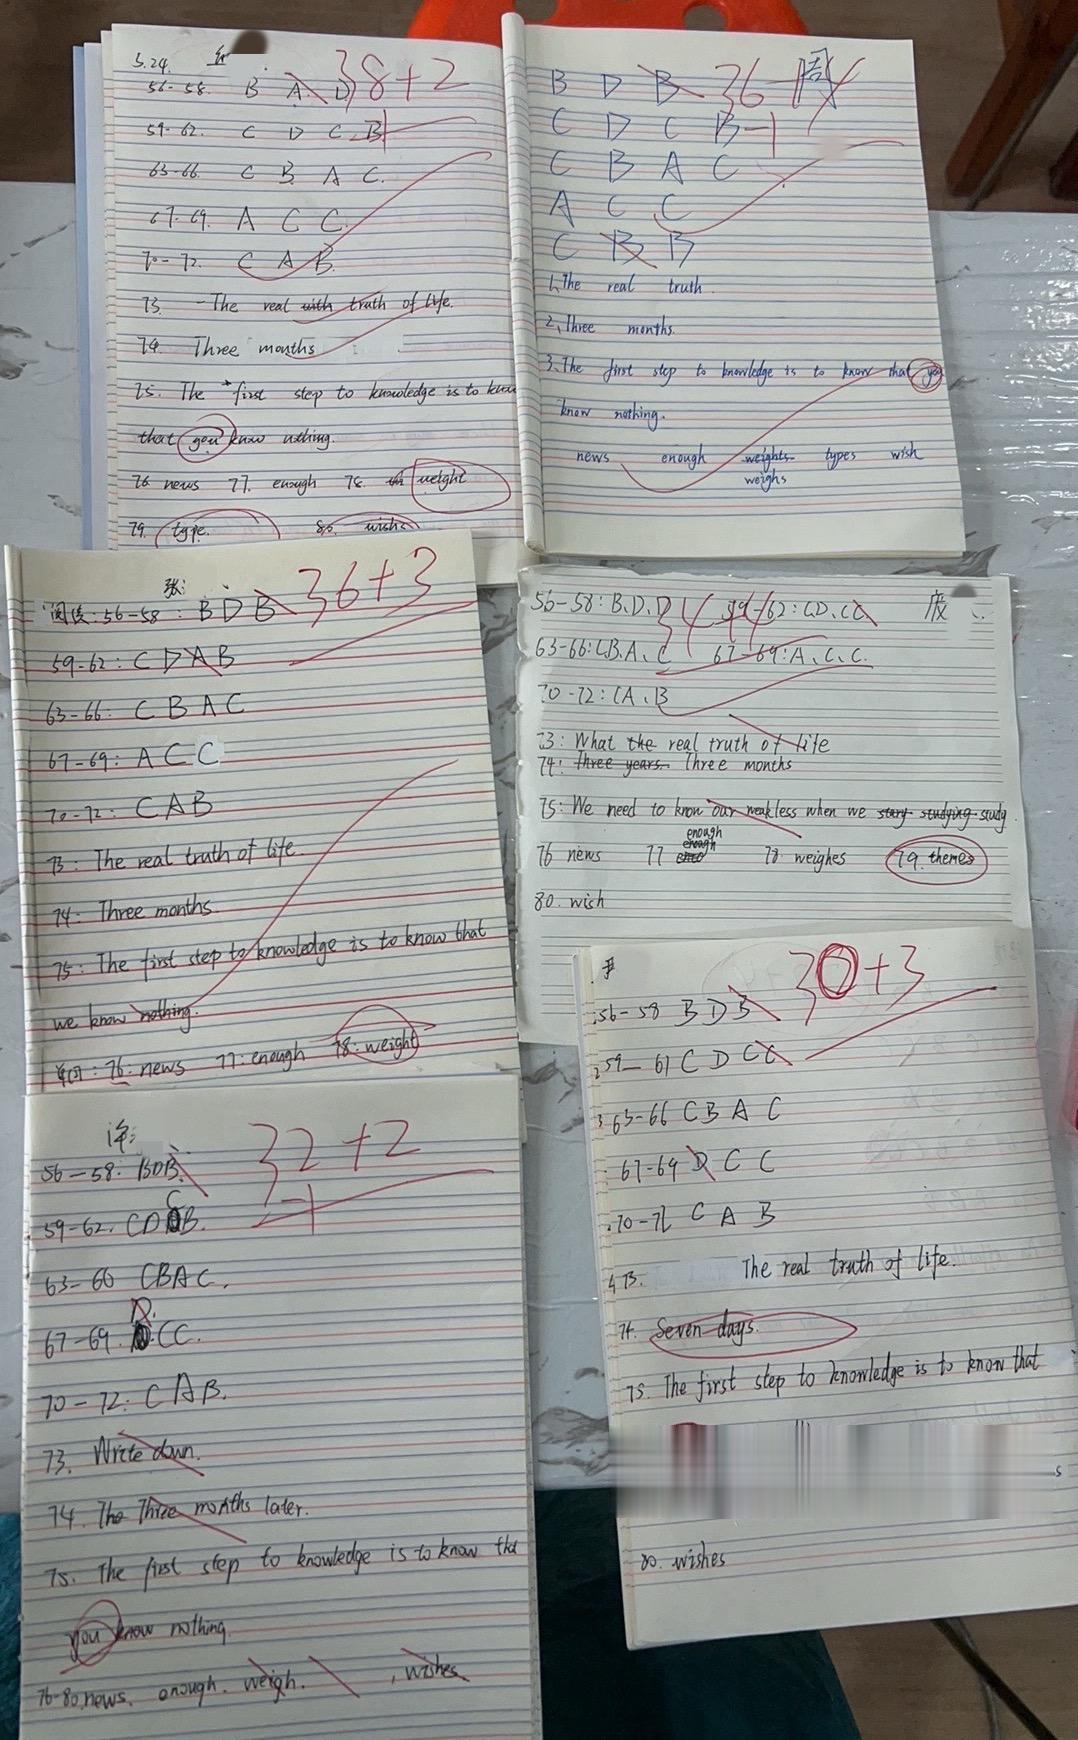 5.24.
38+2
56-58. B A D
59-62. C D C B
63-66. C B A C.
67-69. A C C.
70-72. C A B.
73. The real with truth of life.
74. Three months
75. The first step to knowledge is to know
that you know nothing.
76 news 77. enough 78. weight
79. type. 80. wishs
B D B 36 周
C D C B -1
C B A C
A C C
C B B
1. The real truth.
2. Three months.
3. The first step to knowledge is to know that you
know nothing.
news enough weights types wish
weighs
张: 36+3
阅读: 56-58: B D B
59-62: C D A B
63-66: C B A C
67-69: A C C
70-72: C A B
73: The real truth of life
74: Three months.
75: The first step to knowledge is to know that
we know nothing.
76: news 77: enough 78: weight
56-58: B.D.D 34+4 59-62: C.D.C.C
63-66: C.B.A.C 67-69: A.C.C.
70-72: C A.B
73: What the real truth of life
74: three years. Three months
75: We need to know our weakless when we stary studying study
enough
76 news 77 enough 78 weighes 79. themes
80. wish
30+3
56-58 B D B
59-61 C D C C
63-66 C B A C
67-69 D C C
70-72 C A B
73. The real truth of life.
74. Seven days.
75. The first step to knowledge is to know that
s
80. wishes
32+2
-1
56-58: BDB.
C
59-62. CD B.
63-66 CBAC.
D.
67-69. CC.
70-72: CAB.
73. Write down.
74. The Three months later.
75. The first step to knowledge is to know that
you know nothing.
76-80. news. enough. weigh. , wishes